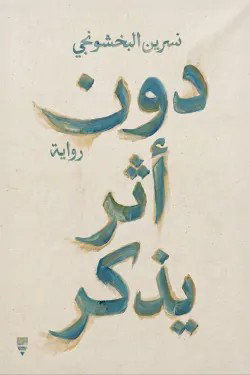 نسرين البخشونجي
دون
أثر
رواية
يذكر